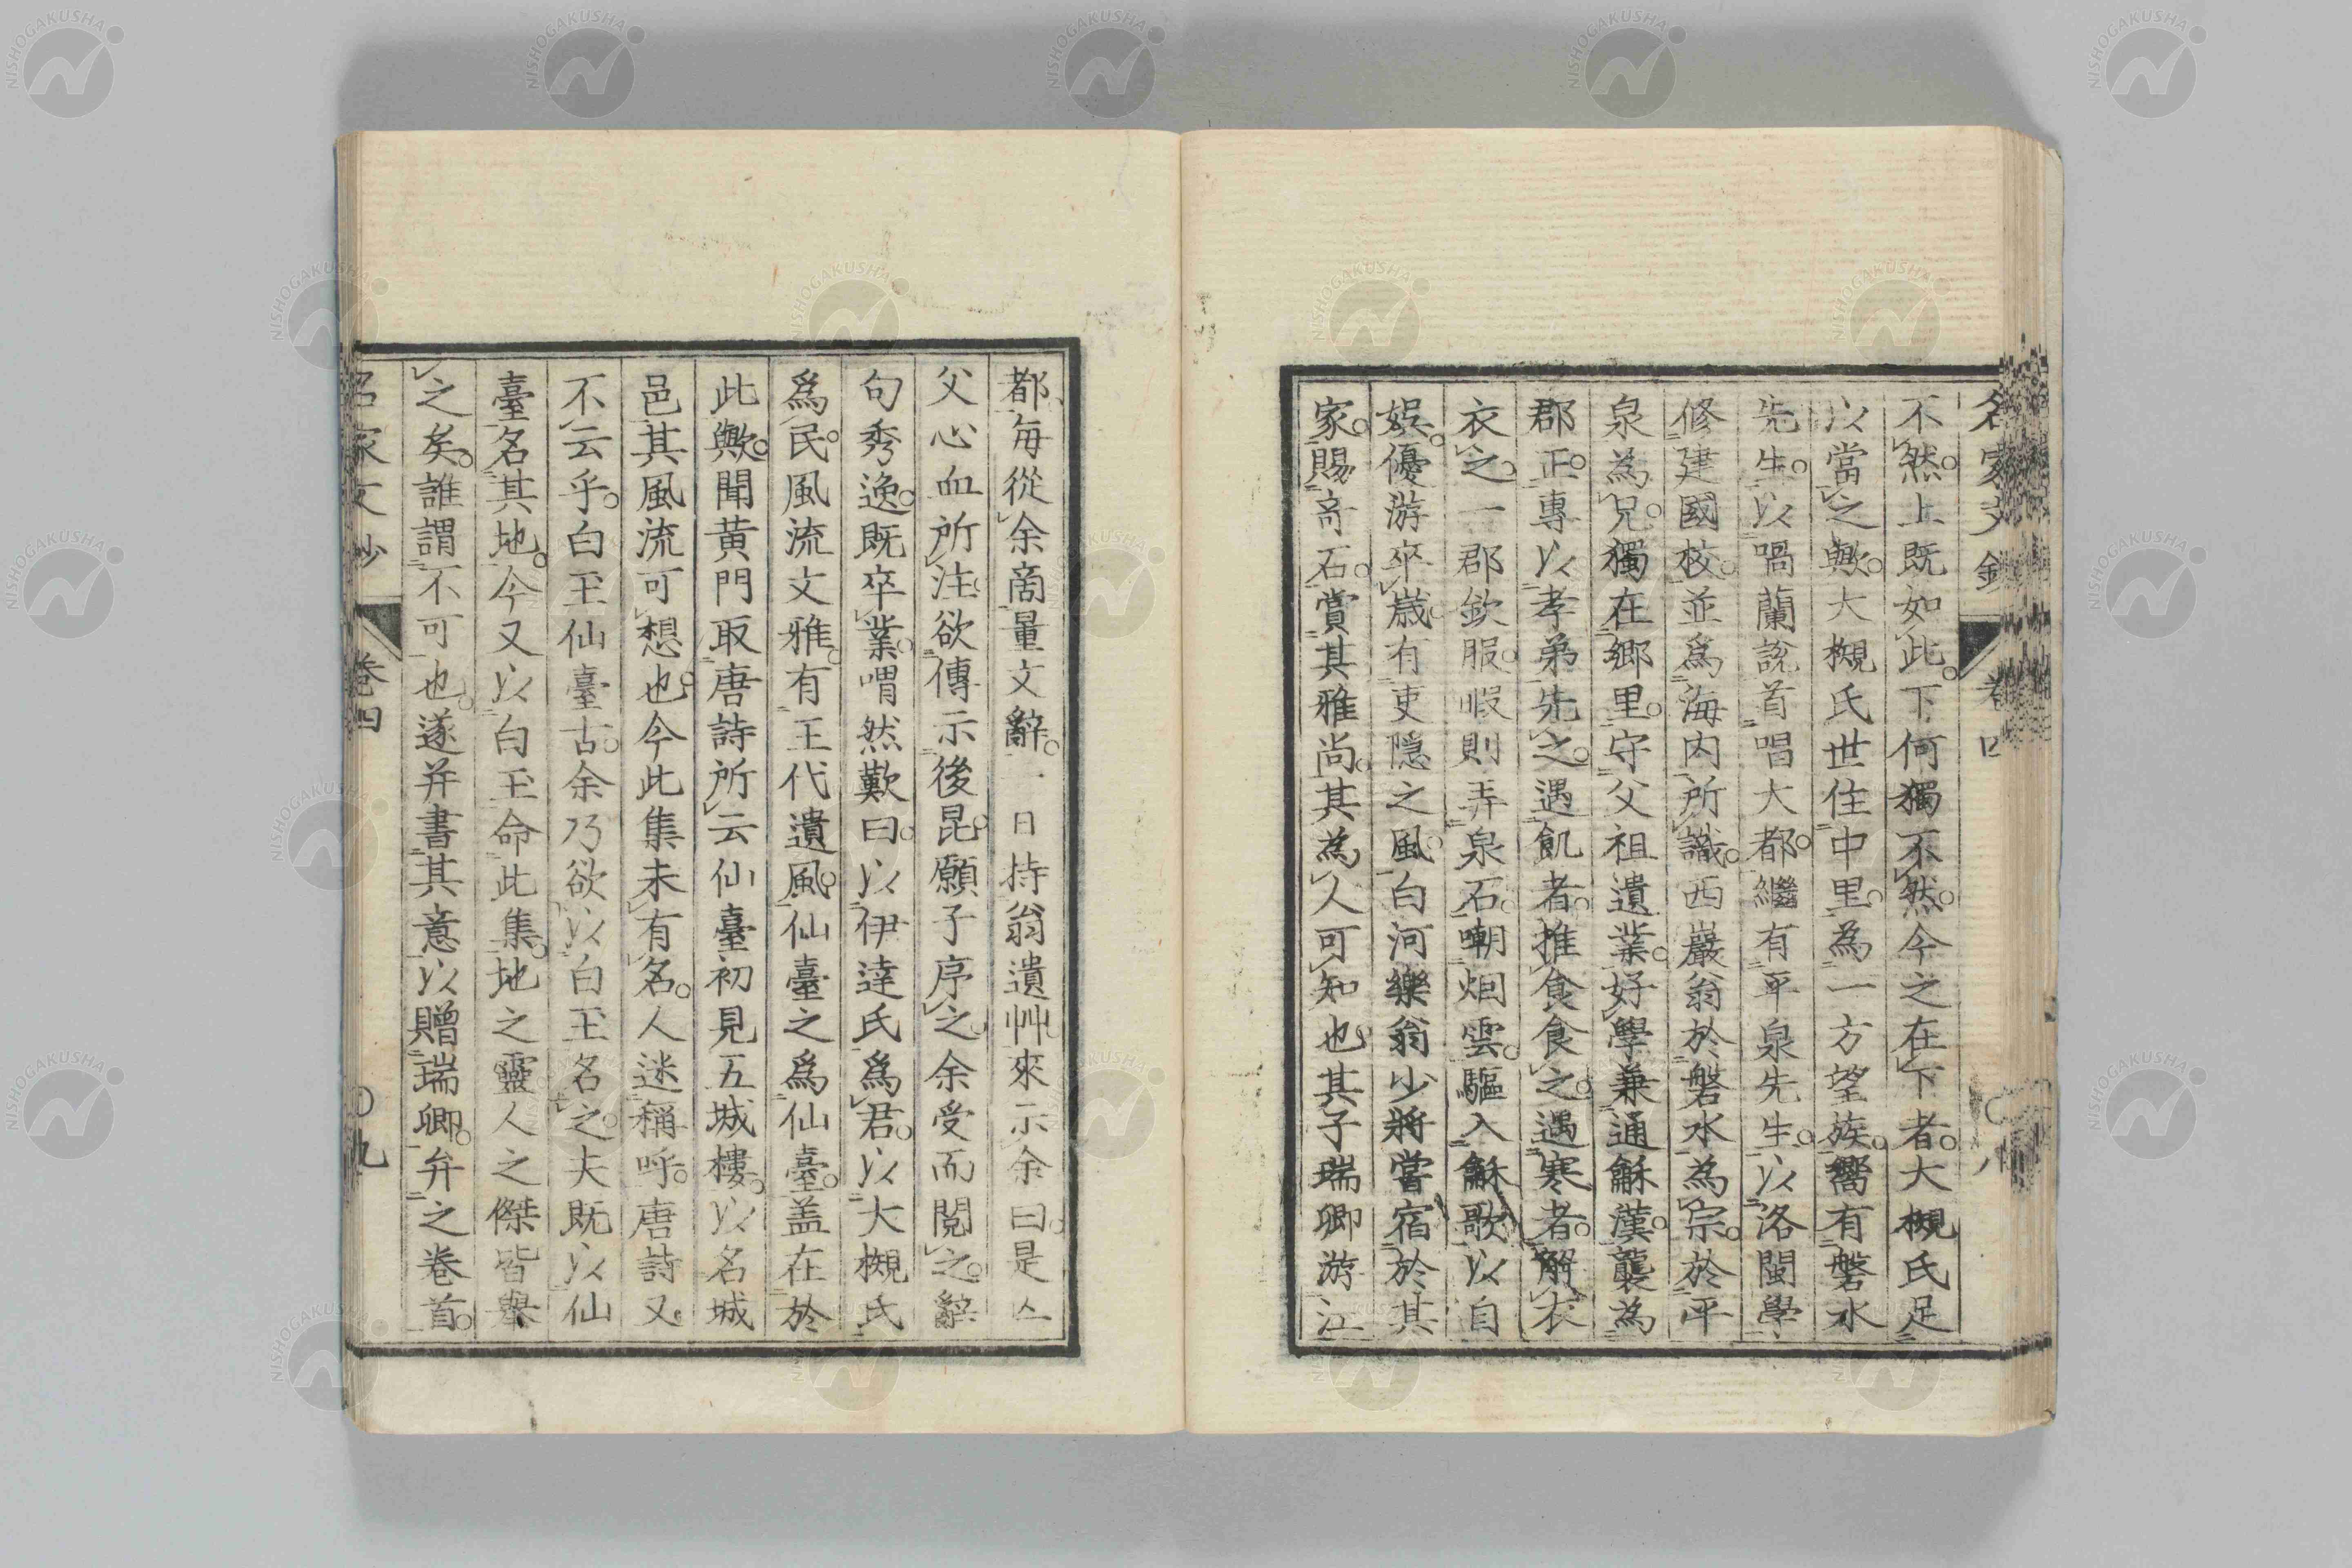 名家文鈔 卷四 〇八
不然。上既如此。下何獨不然。今之在下者。大槻氏足
以當之歟。大槻氏世住中里。為一方望族。嚮有磐水
先生。以喎蘭說首唱大都。繼有平泉先生。以洛閩學
修建國校。並爲海内所識。西巖翁於磐水為宗。於平
泉為兄。獨在鄉里。守父祖遺業。好學兼通龢漢。襲為
郡正。專以孝弟先之。遇飢者。推食食之。遇寒者。解衣
衣之。一郡欽服。暇則弄泉石。嘲烟雲。驅入龢歌以自
娯。優游卒歲。有吏隱之風。白河樂翁少將嘗宿於其
家。賜奇石。賞其雅尚。其為人可知也。其子瑞卿游江
都。每從余商量文辭。一日持翁遺艸來示余曰。是亾
父心血所注。欲傳示後昆。願子序之。余受而閱之。辭
句秀逸。既卒業。喟然歎曰。以伊達氏爲君。以大槻氏
爲民。風流文雅。有王代遺風。仙臺之爲仙臺。盖在於
此歟。聞黄門取唐詩所云仙臺初見五城樓。以名城
邑。其風流可想也。今此集未有名。人迷稱呼。唐詩又
不云乎。白玉仙臺古。余乃欲以白玉名之。夫既以仙
臺名其地。今又以白玉命此集。地之靈人之傑皆舉
之矣。誰謂不可也。遂并書其意以贈瑞卿。弁之卷首。
名家文鈔 卷四 〇九
NISHOGAKUSHA